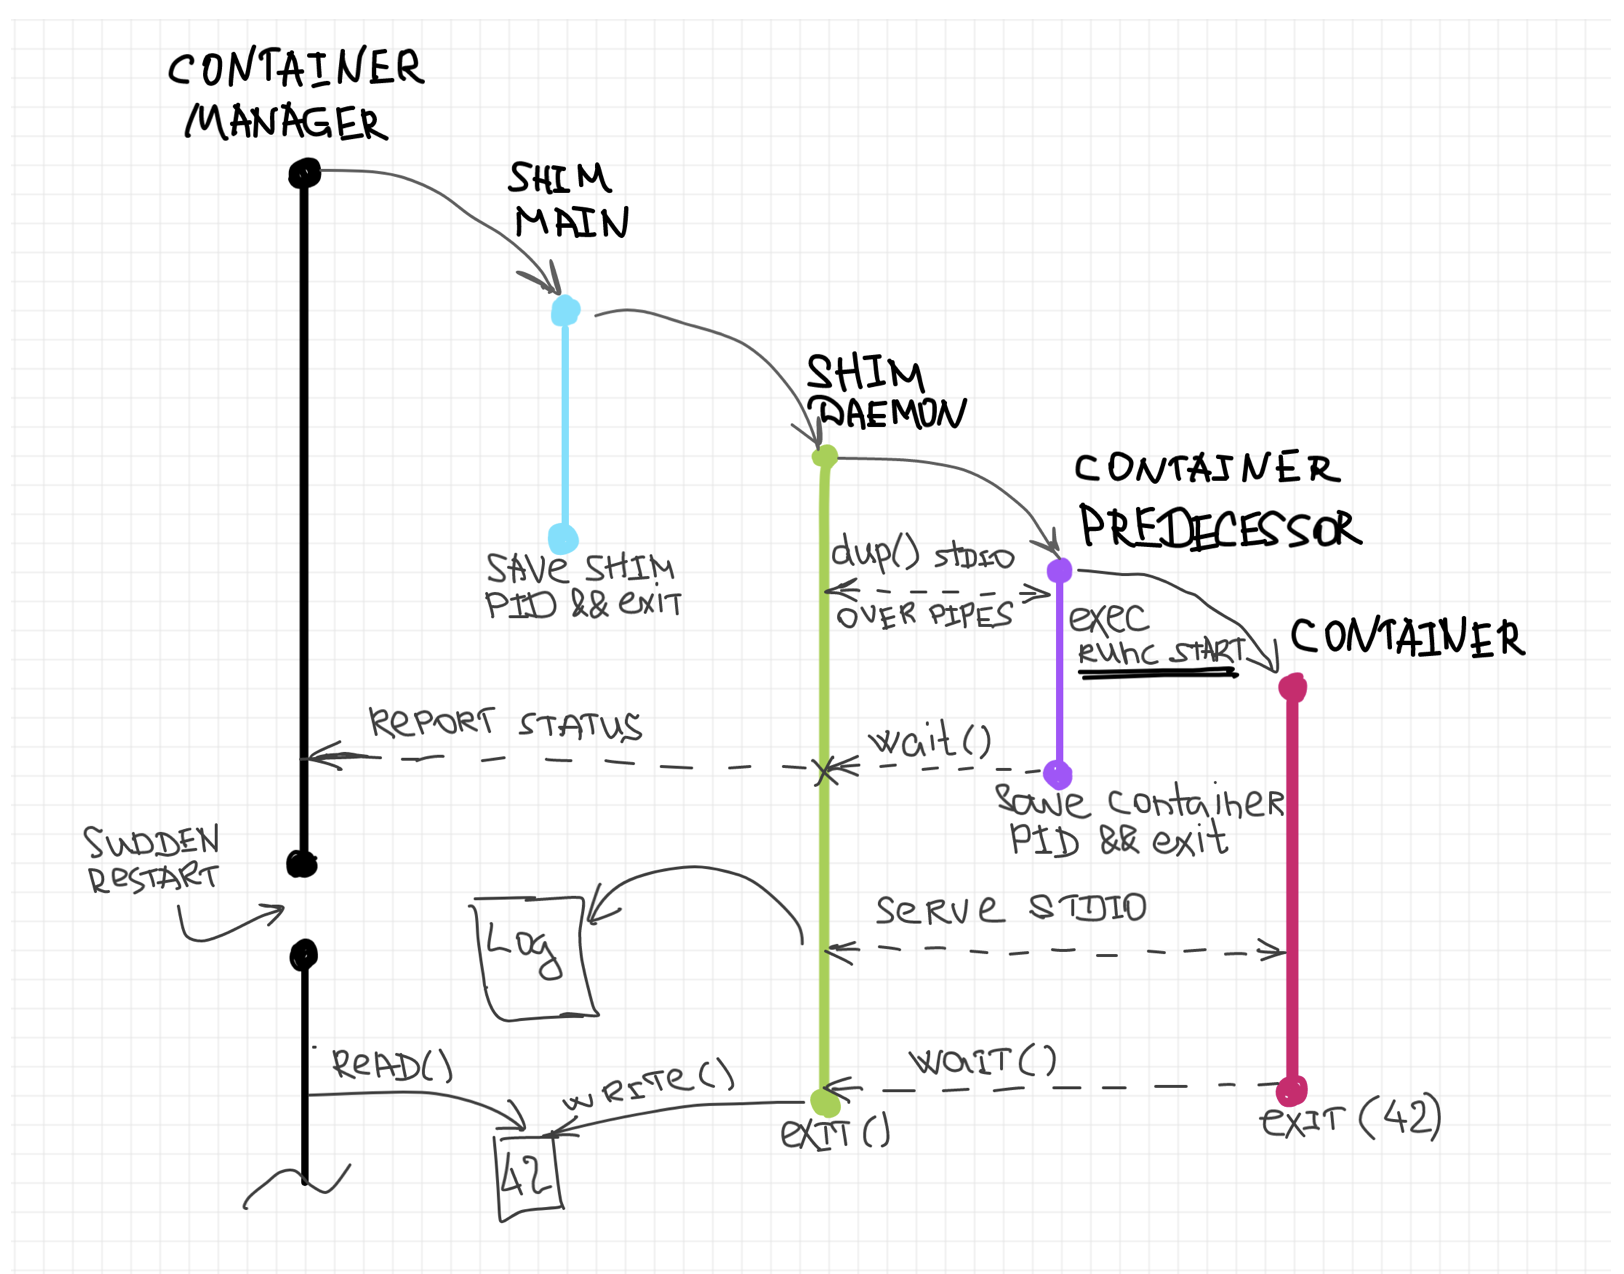 CONTAINER
MANAGER
SHIM
MAIN
SHIM
DAEMON
CONTAINER
PREDECESSOR
SAVe SHIM
PID && exit
dup() STDIO
OVER PIPES
exec
runc START
CONTAINER
RePORT STATUS
wait()
Save container
PID && exit
SUDDEN
ReSTART
Log
Serve STDIO
ReAD()
WRITe()
WaIT()
42
eXIT()
eXIT (42)